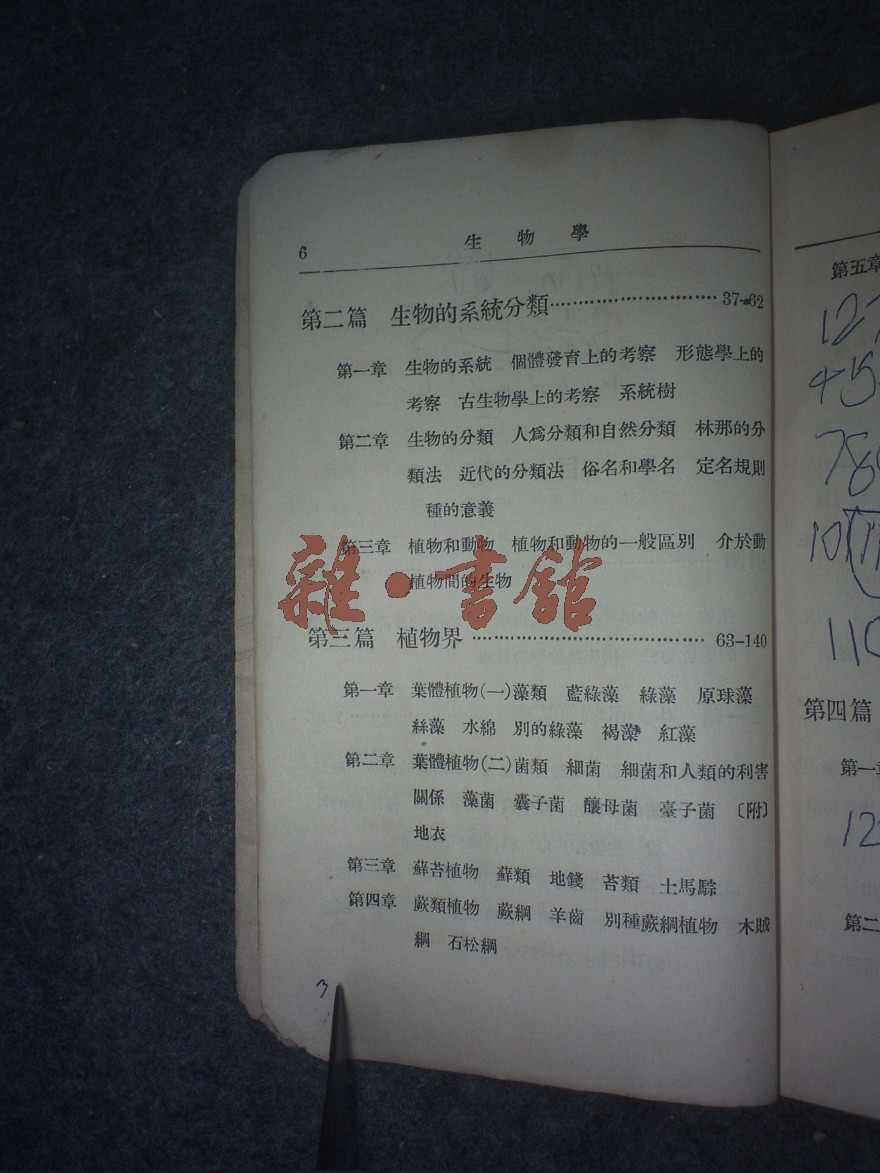 6
生物學
第二篇 生物的系統分類……………………37-62
第一章 生物的系統 個體發育上的考察 形態學上的
考察 古生物學上的考察 系統樹
第二章 生物的分類 人爲分類和自然分類 林那的分
類法 近代的分類法 俗名和學名 定名規則
種的意義
第三章 植物和動物 植物和動物的一般區別 介於動
植物間的生物
雜·書館
第三篇 植物界……………………………63-140
第一章 葉體植物(一)藻類 藍綠藻 綠藻 原球藻
絲藻 水綿 別的綠藻 褐藻 紅藻
第二章 葉體植物(二)菌類 細菌 細菌和人類的利害
關係 藻菌 囊子菌 釀母菌 臺子菌 〔附〕
地衣
第三章 蘚苔植物 蘚類 地錢 苔類 土馬騌
第四章 蕨類植物 蕨綱 羊齒 別種蕨綱植物 木賊
綱 石松綱
3
第五章
127
45
78
10
110
第四篇
第一章
12
第二